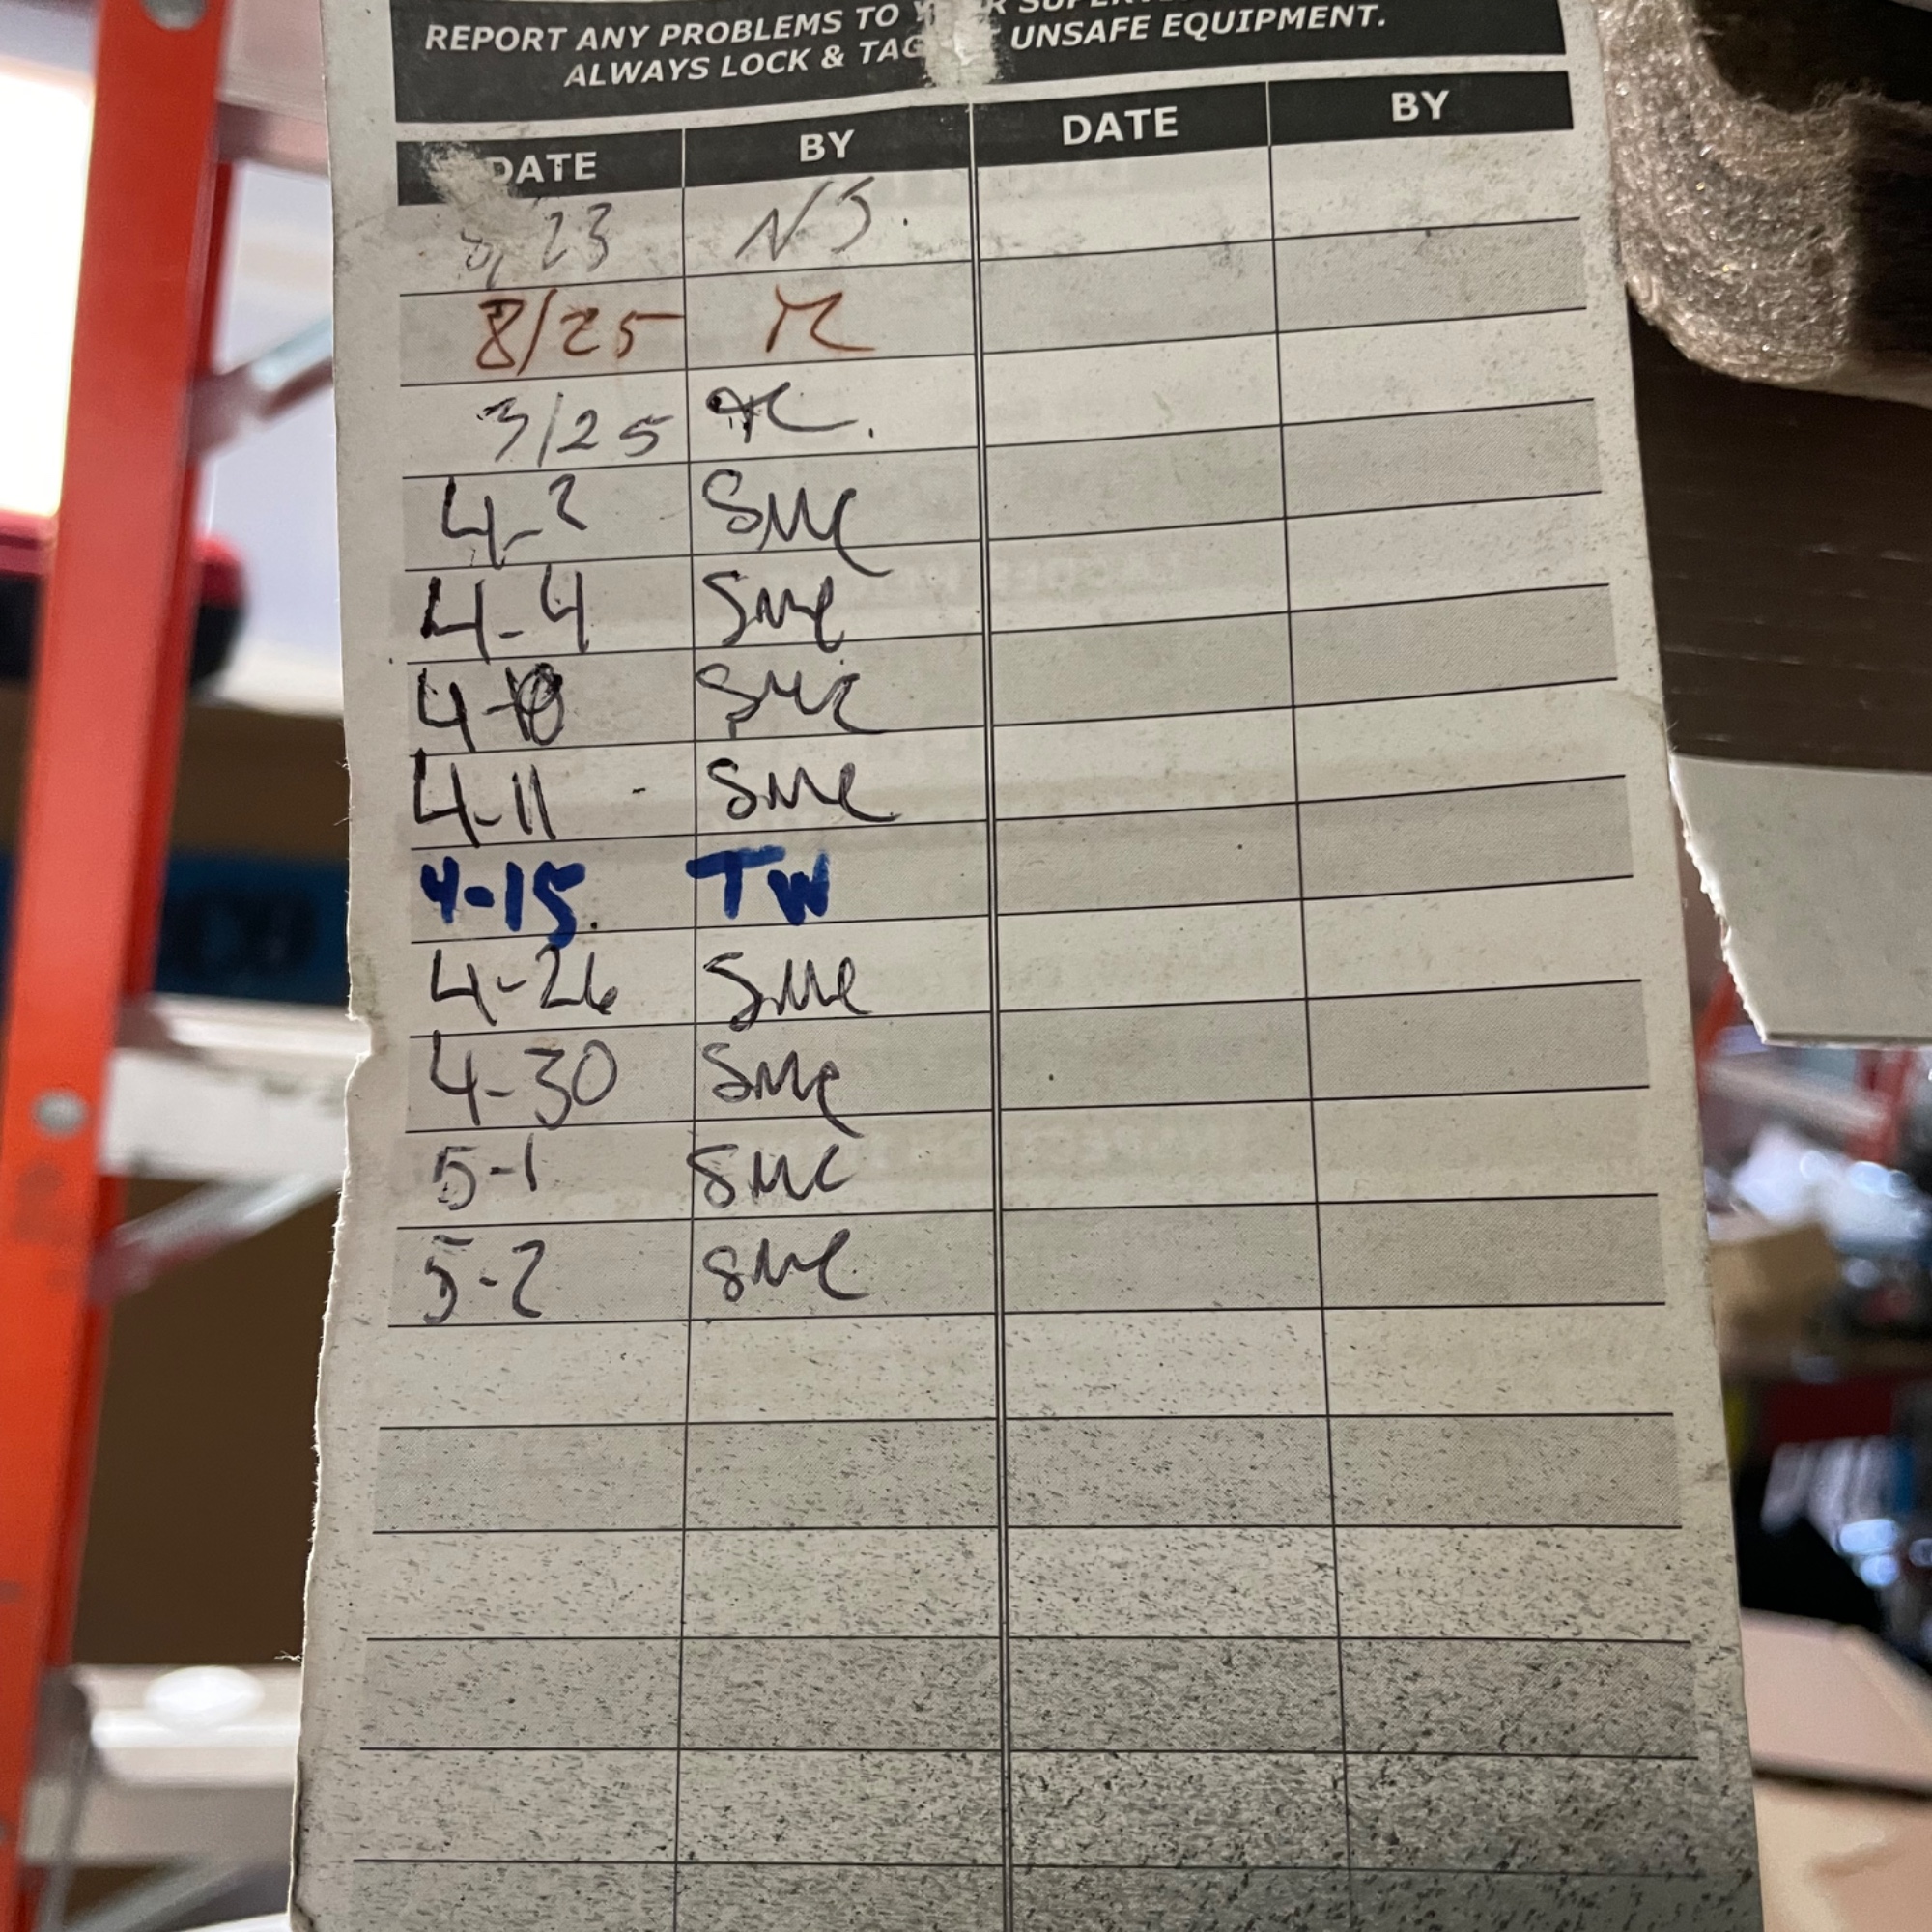 REPORT ANY PROBLEMS TO
ALWAYS LOCK & TAG UNSAFE EQUIPMENT.
DATE BY DATE BY
23 NS.
8/25
3/25
4-2 SMC
4-4 SMC
4- SMC
4-11 - SMC
4-15. TW
4-26 SMC
4-30 SMC
5-1 SMC
5-2 SMC